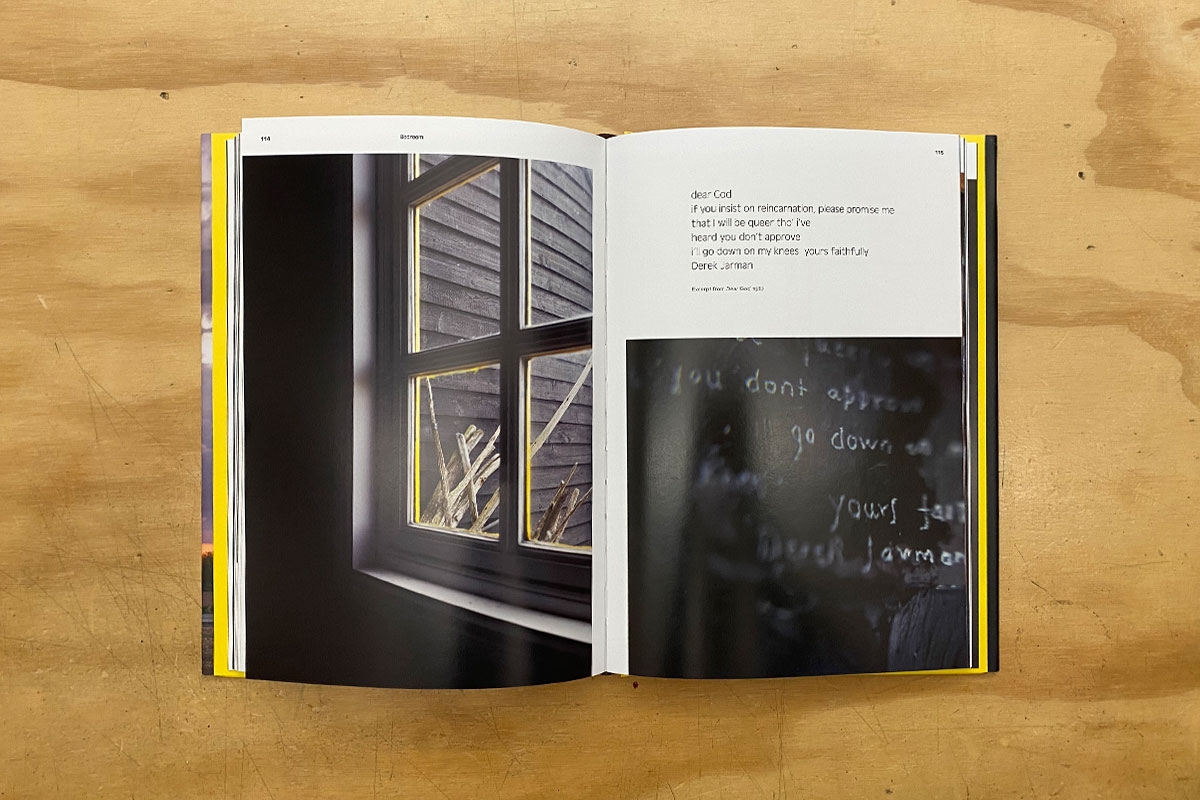 114
Bedroom
115
dear God
if you insist on reincarnation, please promise me
that I will be queer tho' i've
heard you don't approve
i'll go down on my knees yours faithfully
Derek Jarman
Excerpt from Dear God,
you dont approve
go down
yours
Derek Jarman